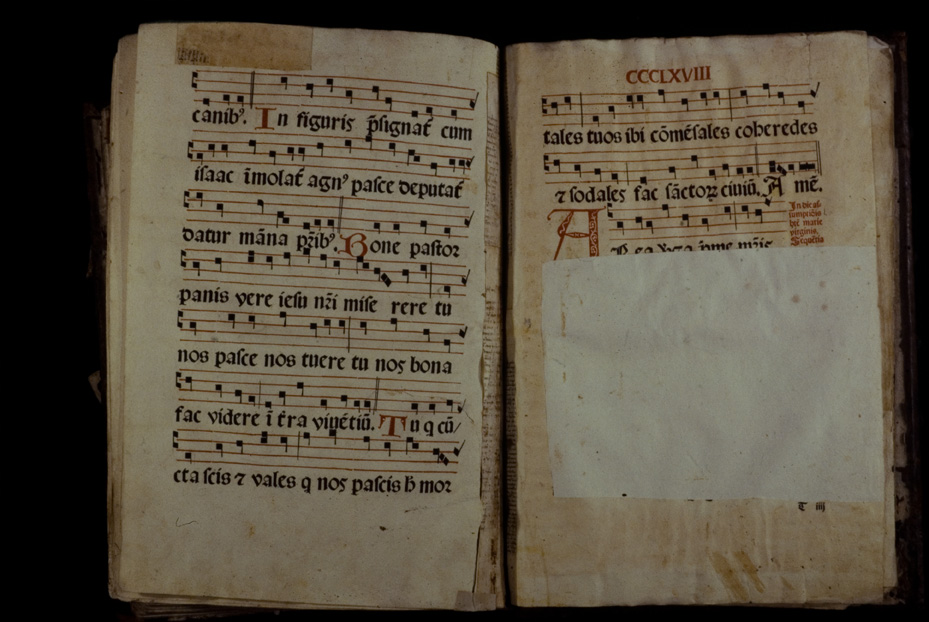 canibꝰ. In figuris p̄signat̄ cum
isaac īmolat̄ agnꝰ pasce deputat̄
datur māna pr̄ibꝰ. Bone pastor
panis vere iesu nr̄i mise rere tu
nos pasce nos tuere tu nos bona
fac videre ī t̄ra viuētiū. Tu q cū/
cta scis ⁊ vales q nos pascis h̄ mor
CCCLXVIII
tales tuos ibi cōmēsales coheredes
⁊ sodales fac sāctoꝝ ciuiū. A mē.
In die as
sumptiōis
bt̄e marie
virginis.
Sequētia
A
T iiij